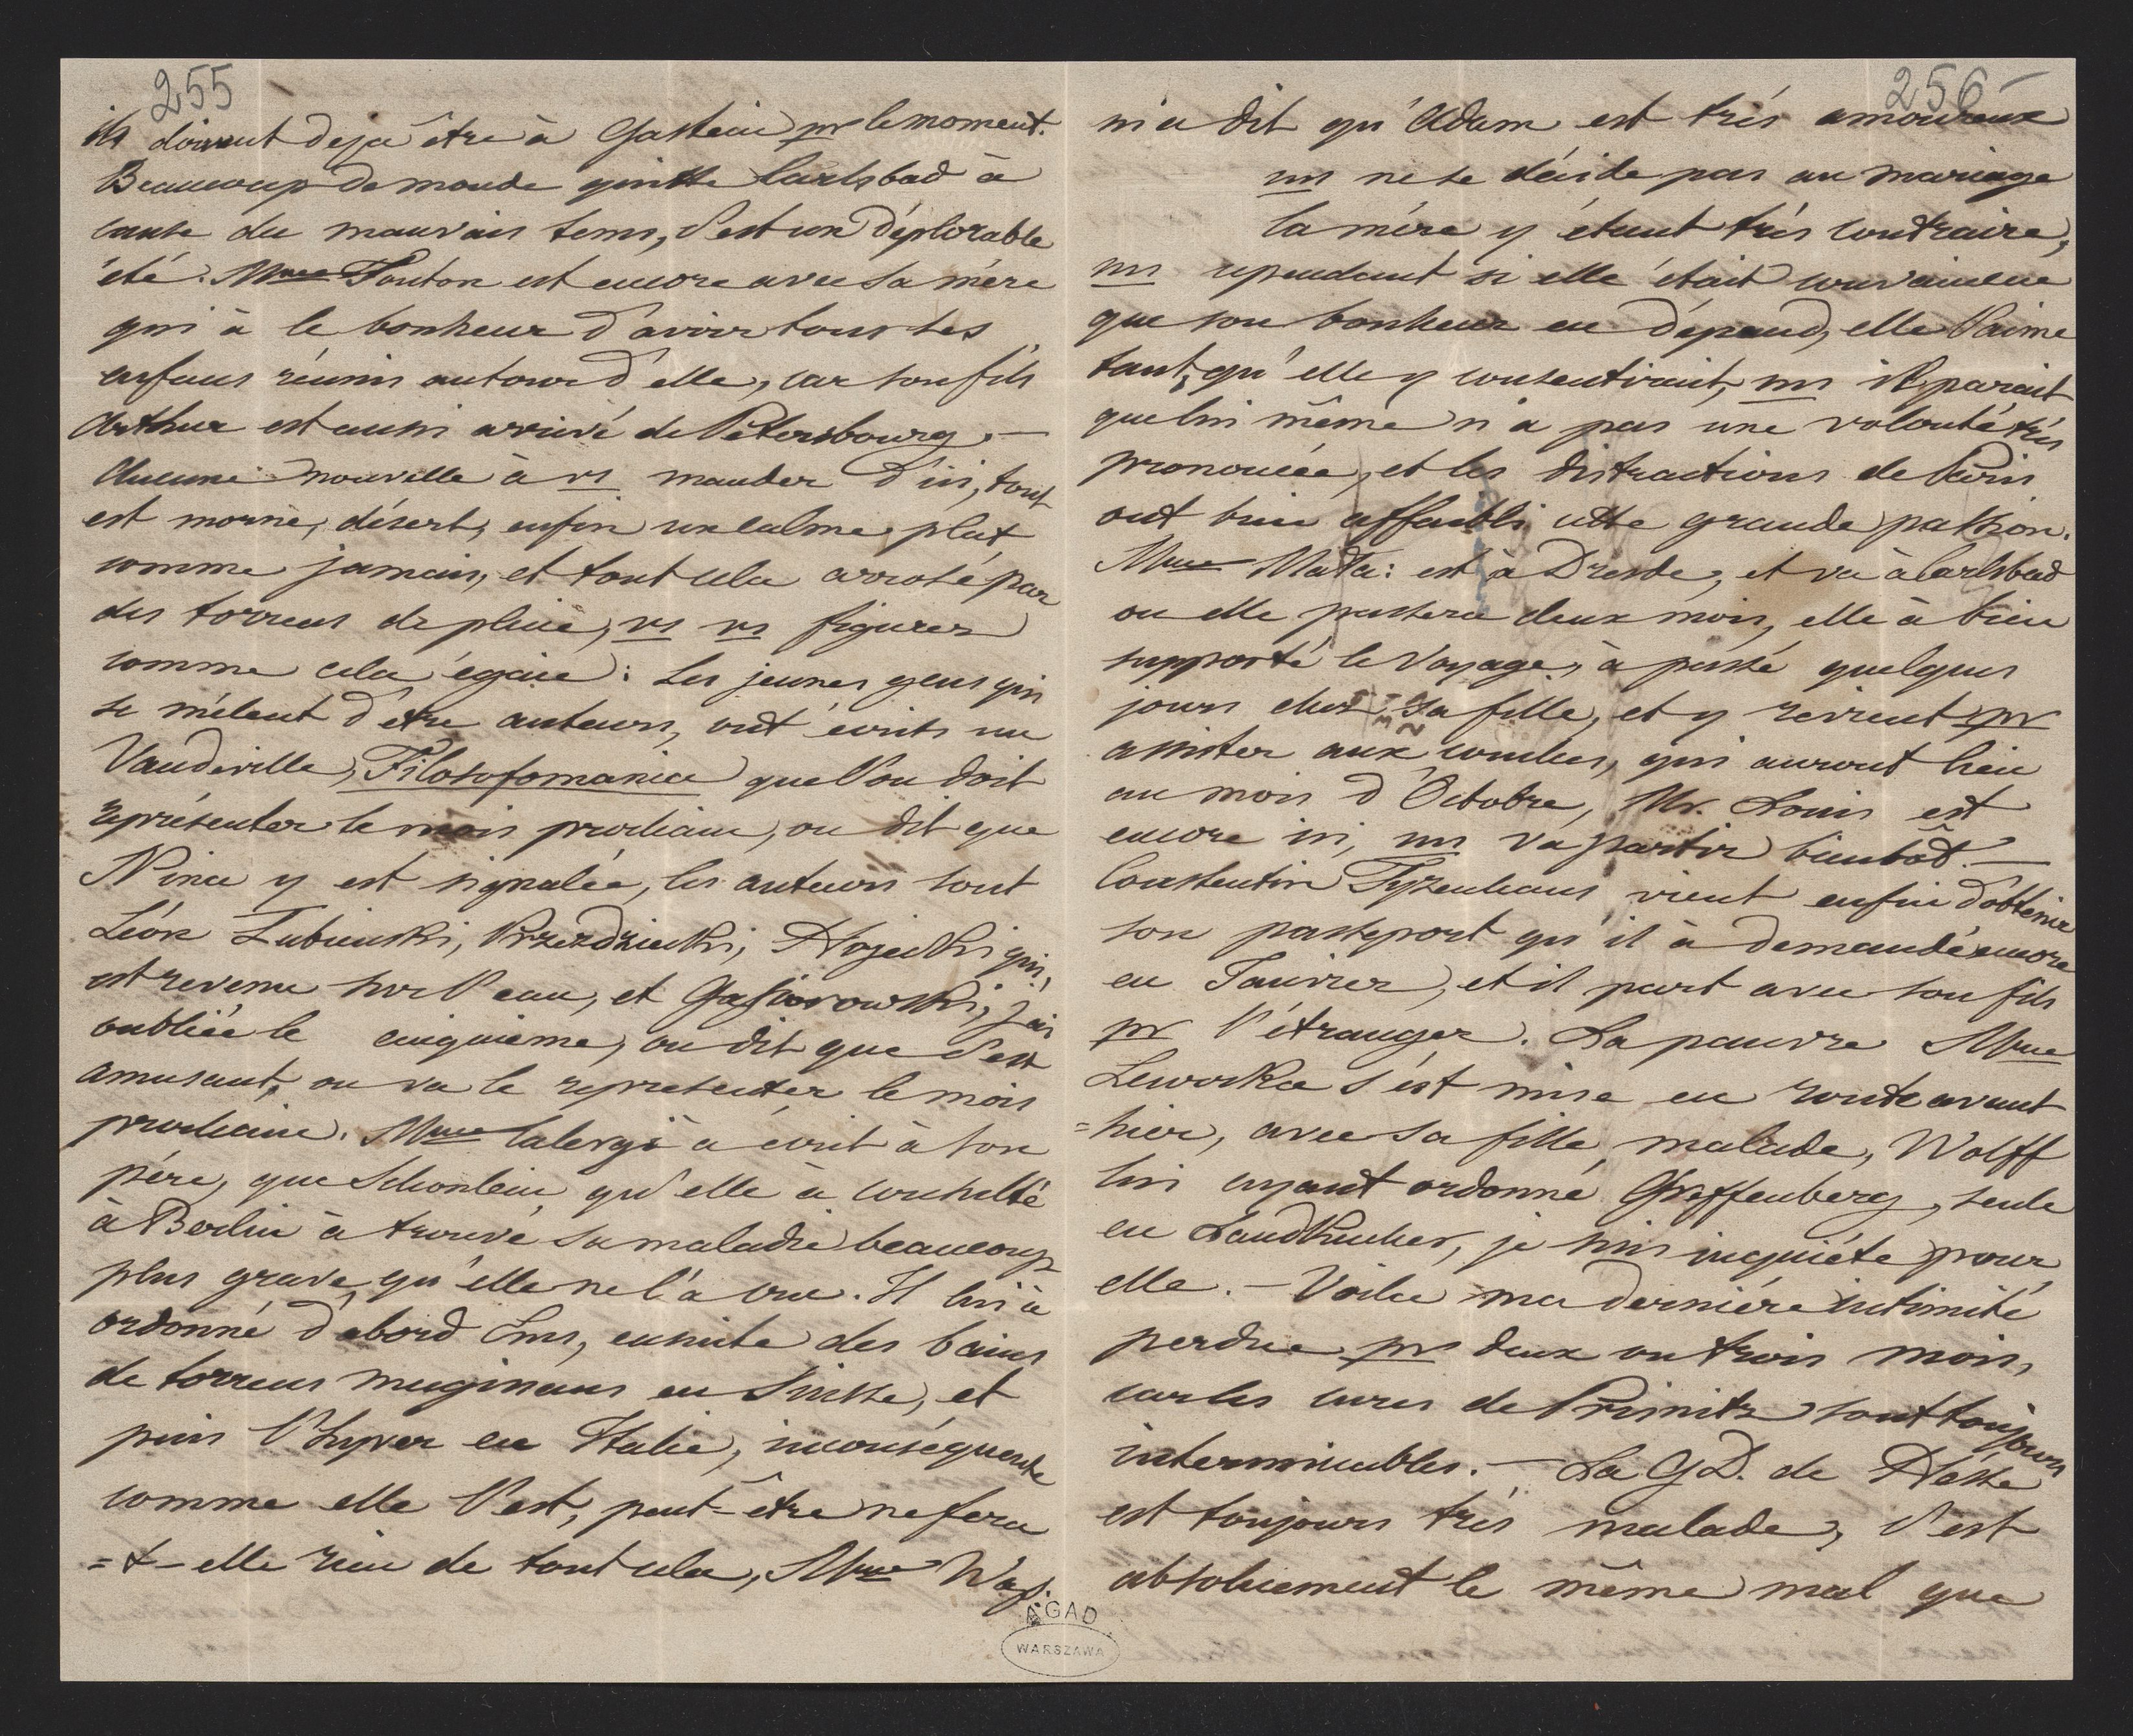 255
ils doivent deja être à Gastein pr le moment.
Beaucoup de monde quitte Carlsbad à
cause du mauvais tems, c'est un déplorable
été. Mme Fonton est encore avec sa mère
qui à le bonheur d'avoir tous ses
enfans réunis autour d'elle, car son fils
Arthur est aussi arrivé de Petersbourg. —
Aucune nouvelle à vs mander d'ici, tout
est morne, désert, enfin un calme plat
comme jamais, et tout cela arrosé par
des torrens de pluie, vs vs figurez
comme cela égaie: Les jeunes gens qui
se mêlent d'etre auteurs, ont écrits un
Vaudeville, Filosofomania que l'on doit
représenter le mois prochain, on dit que
Nina y est signalée, les auteurs sont
Léon Łubienski, Przezdziecki, qui
est revenu sur l'eau, et j'ai
oubliée le cinquième, on dit que c'est
amusant, on va le répresenter le mois
prochain. Mme Calergi à a écrit à son
père, que Schonlein qu'elle à consulté
à Berlin à trouvé sa maladie beaucoup
plus grave qu'elle ne l'a cru. Il lui à
ordonné d'abord Ems, ensuite des bains
de torrens mugissans en Suisse, et
puis l'hyver en Italie, inconséquente
comme elle l'est, peut-être ne fera
=t-elle rien de tout cela, Mme
AGAD
WARSZAWA
256
m'a dit qu'Adam est très amoureux
ms ne se décide pas au mariage
la mére y étant très contraire,
ms cependant si elle était convaincue
que son bonheur en dépend, elle l'aime
tant, qu'elle y consentirait, ms il parait
que lui même n'a pas une volonté très
prononcée, et les distractions de Paris
ont bien affaibli cette grande passion.
Mme est à Dresde, et va à Carlsbad
ou elle passera deux mois, elle à bien
supporté le voyage, à passé quelques
jours chez sa fille, et y revient pr
assister aux couches, qui auront lieu
au mois d'Octobre, Mr. Louis est
encore ici, ms va partir bientôt. —
Constentin Tyzenhaus vient enfin d'obtenir
son passeport qu'il à demandé encore
en Janvier, et il part avec son fils
pr l'étranger. La pauvre Mme
s'est mise en route avant
=hier, avec sa fille malade, Wolff
lui ayant ordonné Greffenberg, seule
en Landkucher, je suis inquiéte pour
elle. — Voila ma derniére intimité
perdue pr deux ou trois mois,
car les cures de Prisnitz sont toujours
interminables. — La G.D. de Hesse
est toujours très malade, c'est
absoluement le même mal que